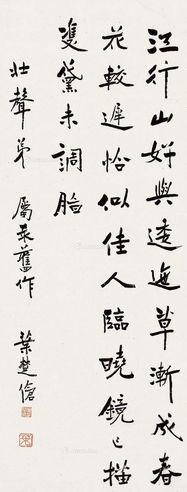 江行山好與逶迤草漸成春
花較遲恰似佳人臨曉鏡已描
雙黛未調脂
壯聲弟 屬录舊作 葉楚傖